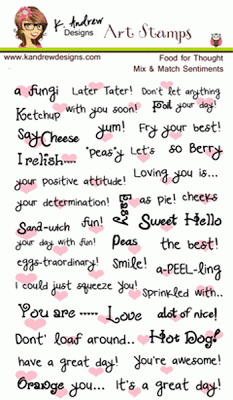 K. Andrew Designs Art Stamps
www.kandrewdesigns.com Food for Thought
Mix & Match Sentiments
a fungi Later Tater! Don't let anything
Ketchup with you soon! Boil your day!
Say Cheese yum! Fry your best!
I relish.... "peas"y Let's so Berry
your positive attitude! Loving you is...
your determination! Easy as pie! cheeks
Sand-wich fun! Sweet Hello
your day with fun! Peas the best!
eggs-traordinary! Smile! a-PEEL-ling
I could just squeeze you! Sprinkled with..
You are ----- Love alot of nice!
Dont' loaf around.. Hot Dog!
have a great day! You're awesome!
Orange you... It's a great day!